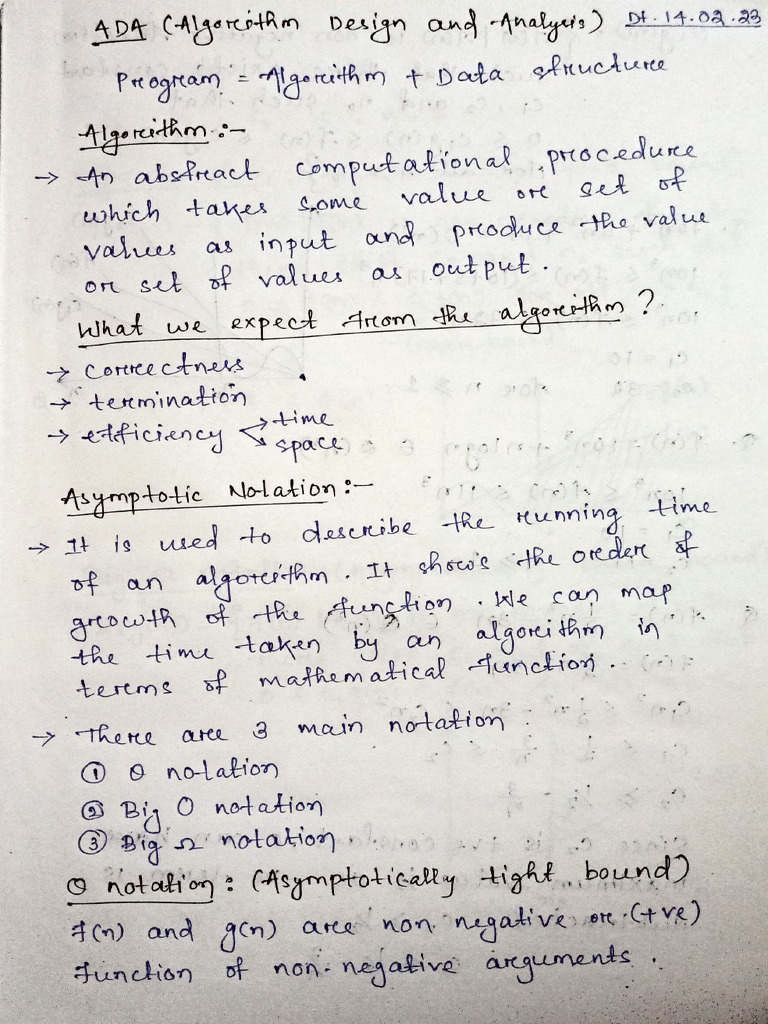 ADA (Algorithm Design and Analysis) Dt. 14.02.23
Program = Algorithm + Data structure
Algorithm :-
→ An abstract computational procedure
which takes some value or set of
values as input and produce the value
or set of values as output.
What we expect from the algorithm ?
→ correctness
→ termination
→ efficiency → time
→ space
Asymptotic Notation :-
→ It is used to describe the running time
of an algorithm. It shows the order of
growth of the function. We can map
the time taken by an algorithm in
terms of mathematical function.
→ There are 3 main notation :
① θ notation
② Big O notation
③ Big Ω notation
θ notation : (Asymptotically tight bound)
f(n) and g(n) are non negative or (+ve)
function of non-negative arguments.